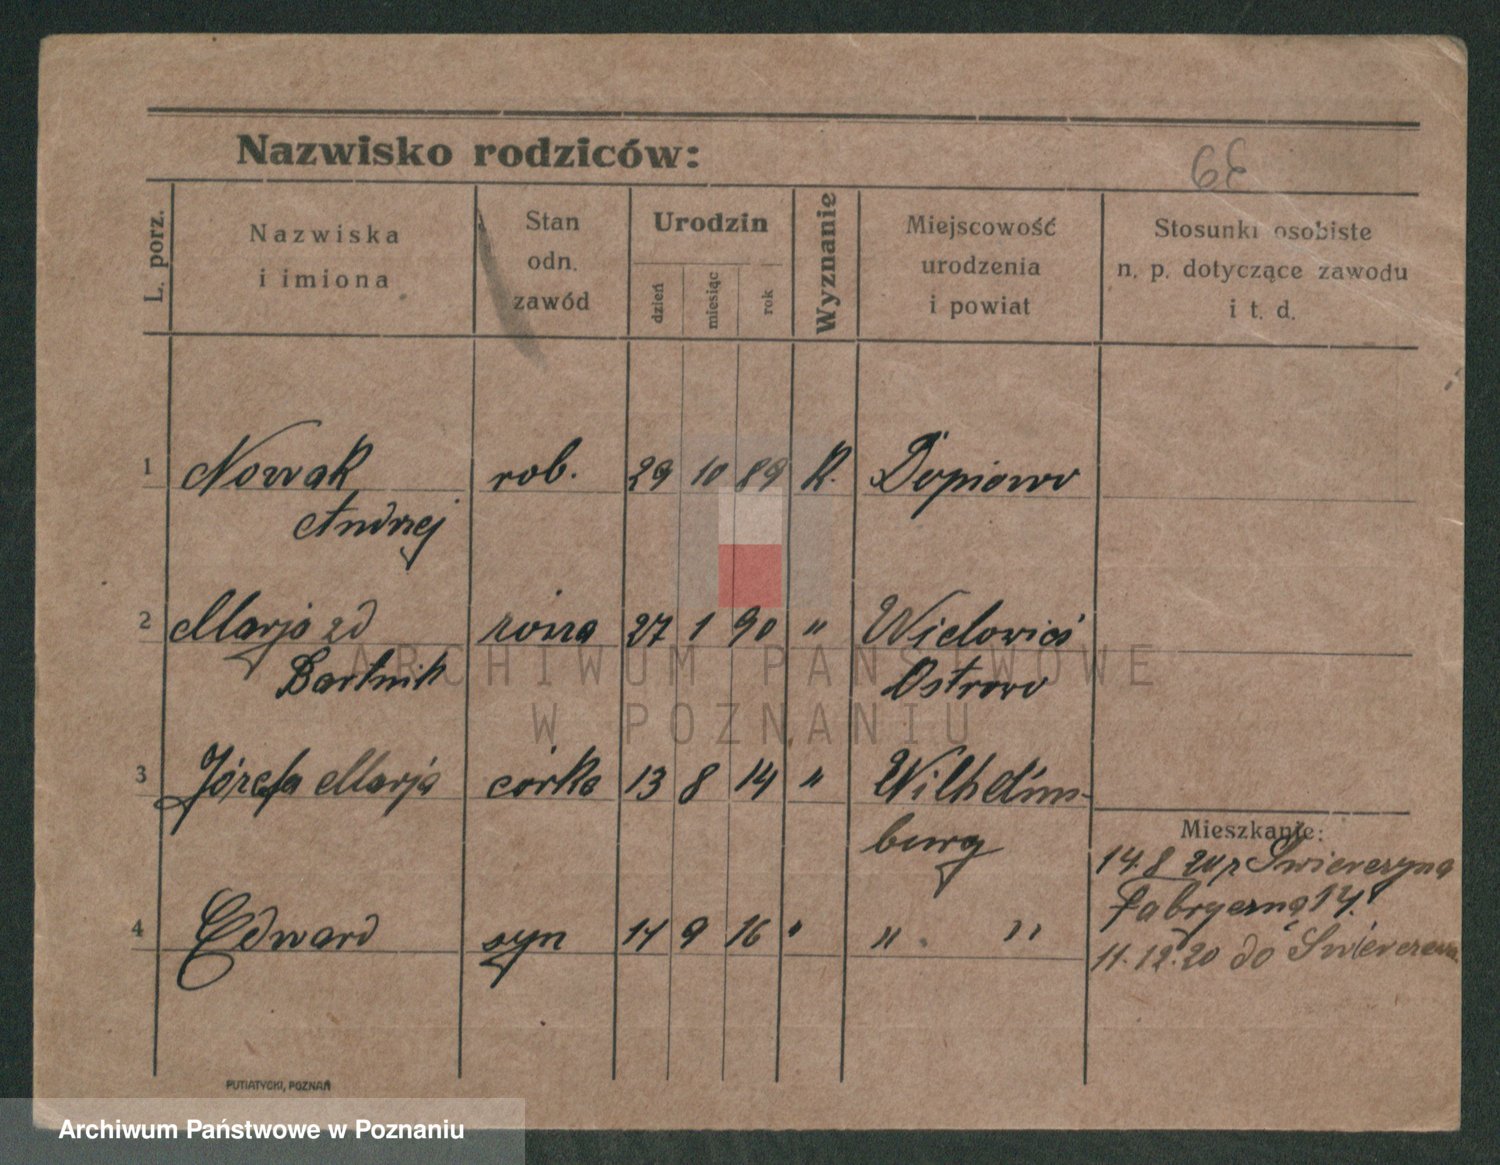 Nazwisko rodziców:
39
L. porz.
Nazwiska
i imiona
Stan
odn.
zawód
Urodzin
dzień
miesiąc
rok
Wyznanie
Miejscowość
urodzenia
i powiat
Stosunki osobiste
n. p. dotyczące zawodu
i t. d.
1 Nowak rob. 29 10 89 K. Dopiewo
Andrzej
2 Marja zd żona 27 1 90 " Wielowieś
Bartnik Ostrowo
3 Józefa Marja córka 13 8 14 " Wilhelms-
burg
4 Edward syn 14 9 16 " " "
Mieszkanie:
14.8 20 z Świerczyna
Fabryczna 14.
11.12.20 do Świerczewa
PUTIATYCKI, POZNAŃ
ARCHIWUM PAŃSTWOWE
W POZNANIU
Archiwum Państwowe w Poznaniu